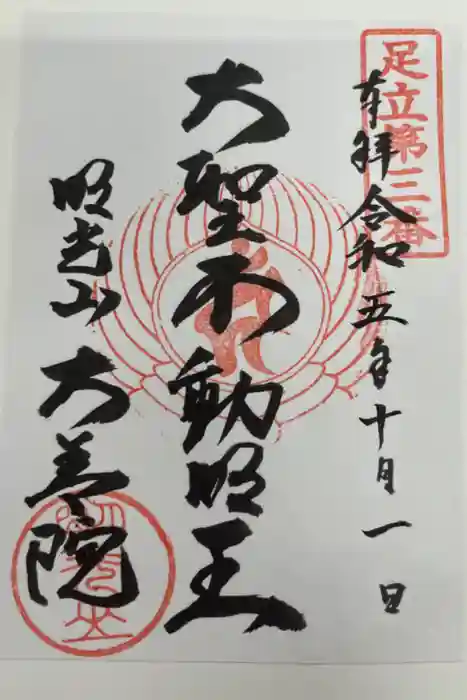 足立第三番
奉拝令和五年十月一日
大聖不動明王
明光山大善院